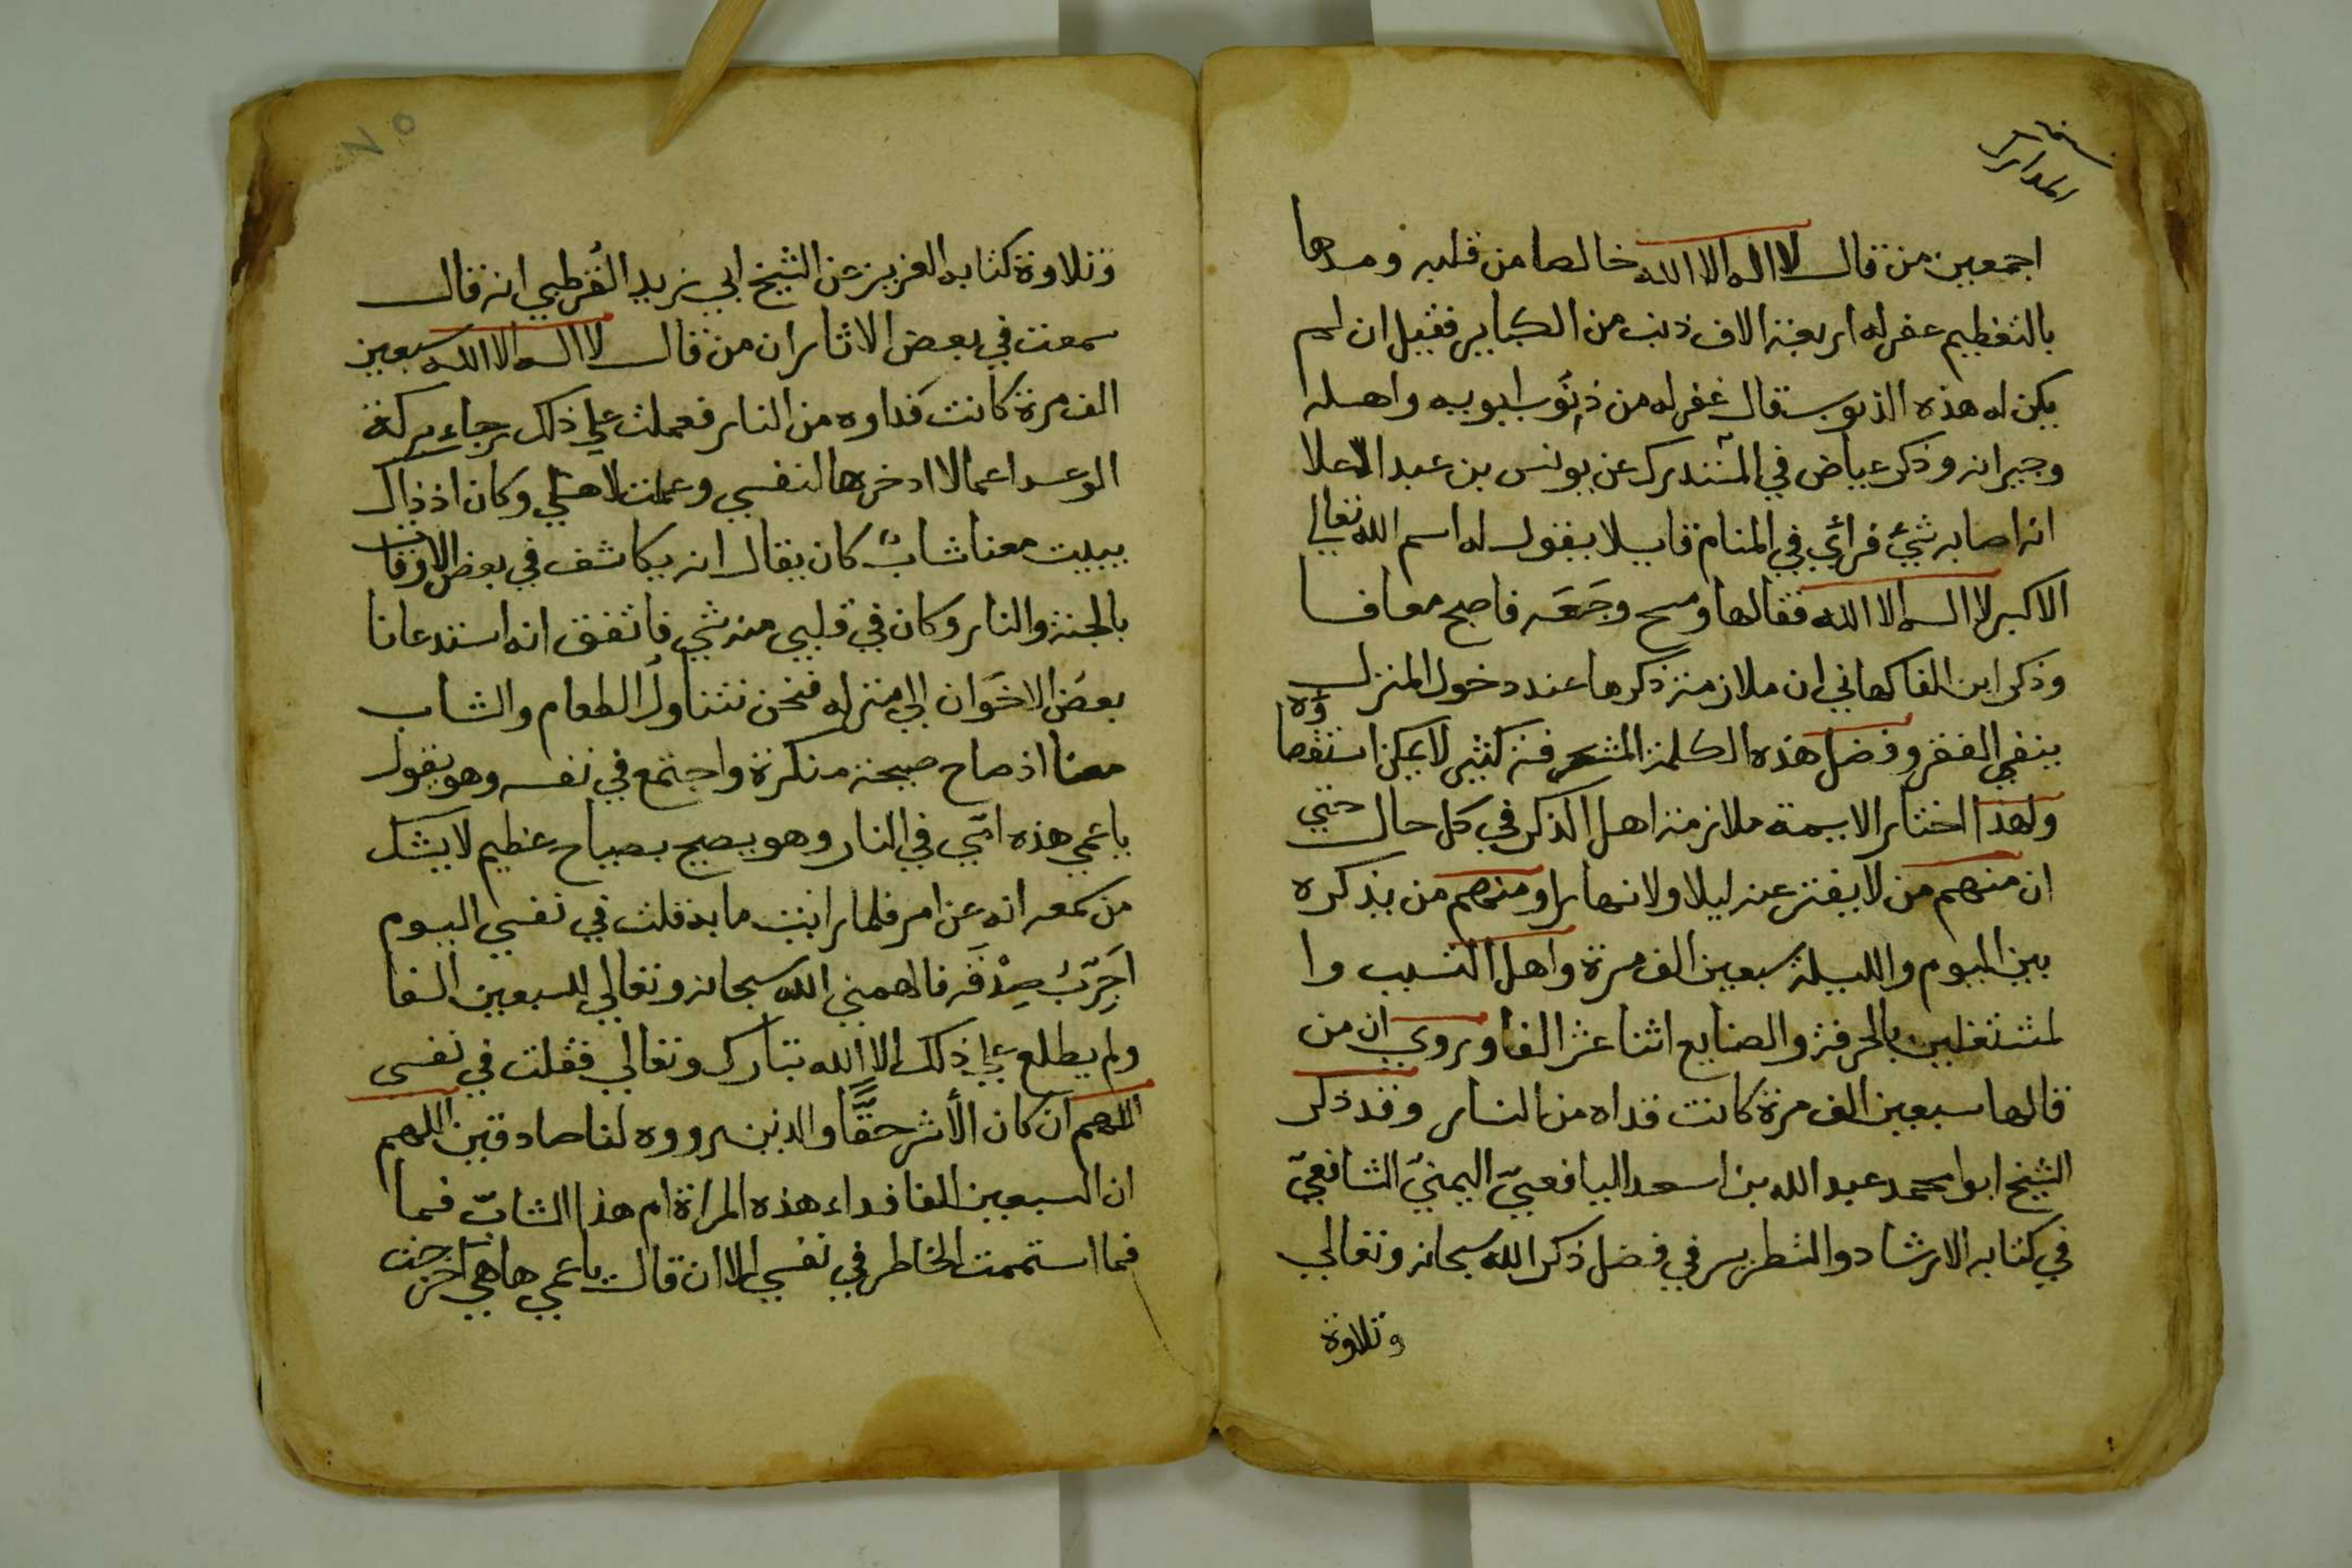 المدارك
اجمعين من قال لا اله الا الله خالصا من قلبه ومدها
بالتعظيم غفر له اربعة الاف ذنب من الكباير فقيل ان لم
يكن له هذه الذنوب قال غفر له من ذنوب ابويه واهله
وجيرانه وذكر عياض في المستدرك عن يونس بن عبد الاعلا
انه اصابه شيئ فراي في المنام قايلا يقول له اسم الله تعالى
الاكبر لا اله الا الله فقالها ومسح وجعه فاصبح معافا
وذكر ابن الفاكهاني ان ملازمة ذكرها عند دخول المنزل
ينفي الفقر وفضل هذه الكلمة المشرفة كثير لا يمكن استقصاؤه
ولهذا اختار الايمة ملازمة اهل الذكر في كل حال حتي
ان منهم من لا يفتر عنه ليلا ولا نهارا ومنهم من يذكره
بين اليوم والليلة سبعين الف مرة واهل التسبب وا
لمشتغلين بالحرفة والصنايع اثنا عشر الفا وروي ان من
قالها سبعين الف مرة كانت فداه من النار وقد ذكر
الشيخ ابوا محمد عبد الله بن اسعد اليافعيّ اليمنيّ الشافعيّ
في كتابه الارشاد والتطريز في فضل ذكر الله سبحانه وتعالى
وتلاوة
وتلاوة كتابه العزيز عن الشيخ ابي زيد القُرطبي انه قال
سمعت في بعض الاثار ان من قال لا اله الا الله سبعين
الف مرة كانت فداوه من النار فعملت علي ذلك رجاء بركة
الوعد اعمالا ادخرها لنفسي وعملت لاهلي وكان اذ ذاك
يبيت معنا شابٌ كان يقال انه يكاشف في بعض الاوقات
بالجنة والنار وكان في قلبي منه شي فاتفق انه استدعانا
بعض الاخوان الي منزله فنحن نتناول الطعام والشاب
معنا اذ صاح صيحة منكرة واجتمع في نفسه وهو يقول
يا عمي هذه امّي في النار وهو يصيح بصياح عظيم لا يشك
من سمعه انه عن امر فلما رايت ما به قلت في نفسي اليوم
اجَرّبُ صِدْقَه فالهمني الله سبحانه وتعالي السبعين الفا
ولم يطلع علي ذلك الا الله تبارك وتعالي فقلت في نفسى
اللهم ان كان الأثر حقًّا والذين رووه لنا صادقين اللهم
ان السبعين الفا فداء هذه المراة ام هذا الشابّ فما
فما استممت الخاطر في نفسي الا ان قال يا عمي ها هي اخرجت